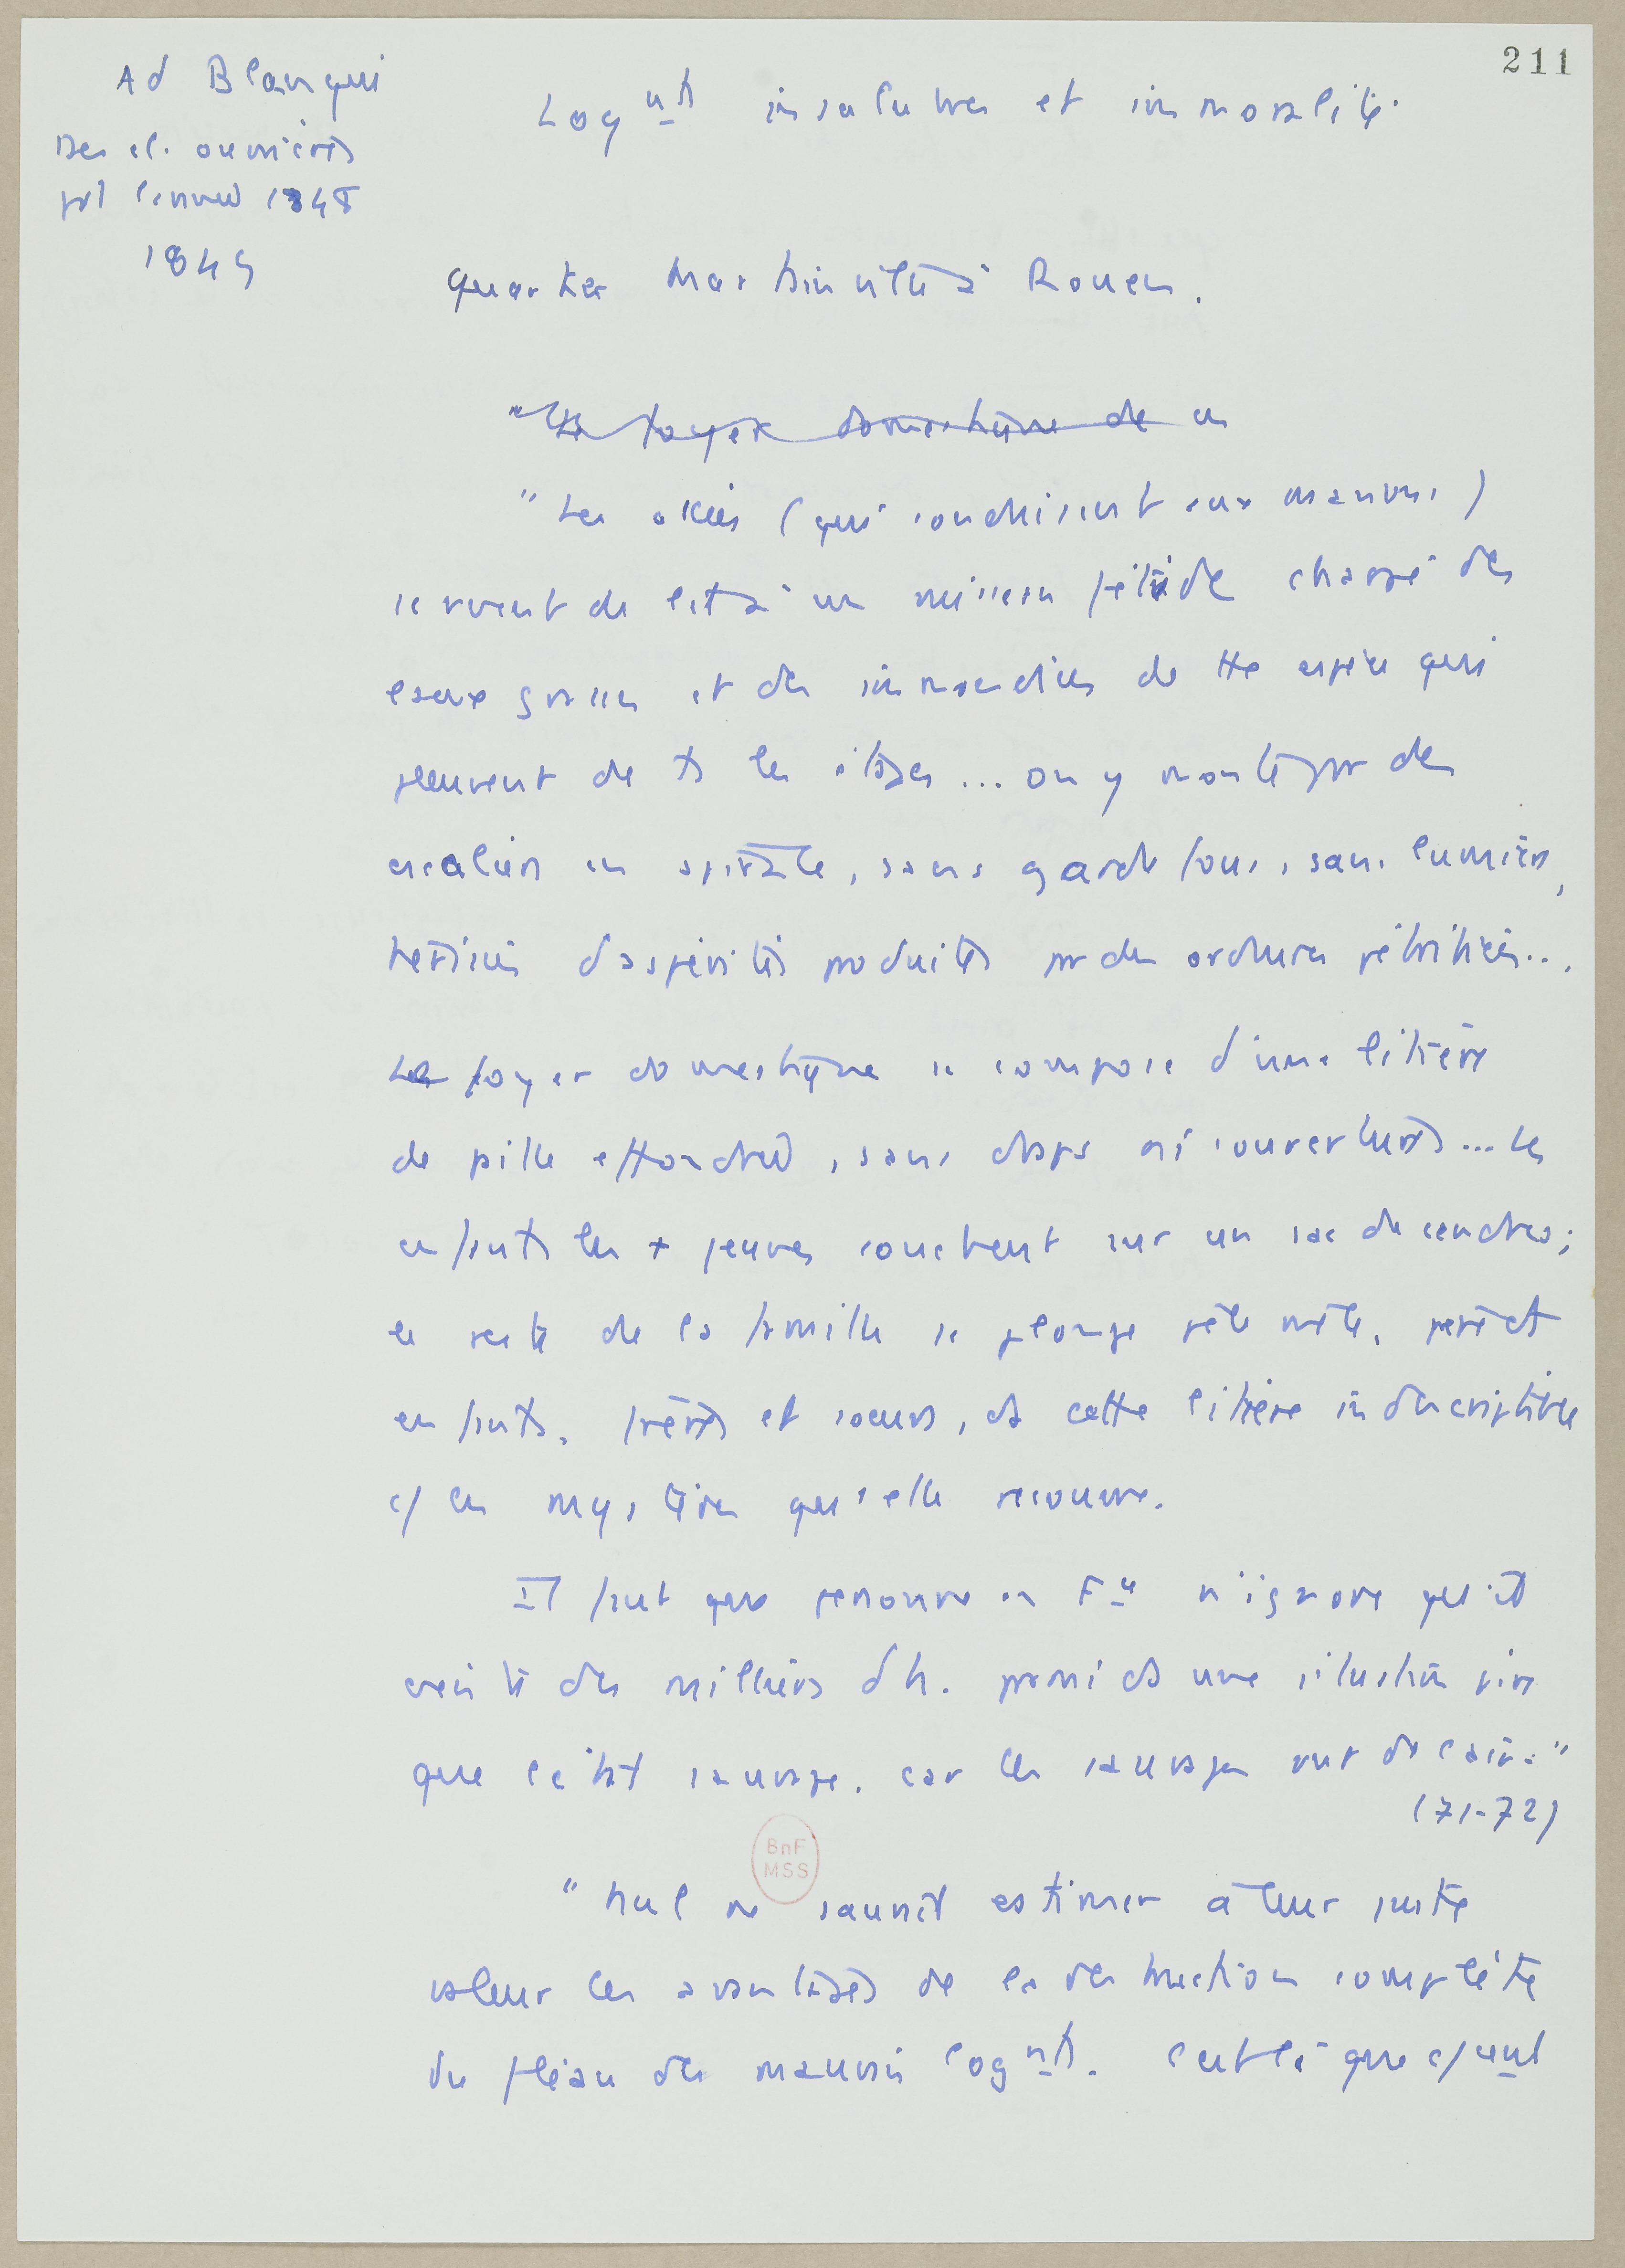 211
Ad Blanqui
Des cl. ouvrières
pdt l'année 1848
1849
Lognts insalubres et immoralité.
Quartier Martinville à Rouen.
"Le foyer domestique de ce
"Les allées (qui conduisent aux maisons)
servent de lit à un ruisseau fétide chargé des
eaux grasses et des immondices de tte espèce qui
pleuvent de ts les étages... on y monte par des
escaliers en spirale, sans garde fous, sans lumière,
hérissés d'aspérités produites par des ordures pétrifiées...
Le foyer domestique se compose d'une litière
de paille effondrée, sans draps ni couvertures... Les
enfants les + jeunes couchent sur un sac de cendres;
le reste de la famille se plonge pêle mêle, père et
enfants, frères et soeurs, ds cette litière indescriptible
c/ les mystères qu'elle recouvre.
Il faut que personne en Fce n'ignore qu'il
existe des milliers d'h. parmi ds une situation pire
que l'état sauvage, car les sauvages ont de l'air."
(71-72)
BnF
MSS
"Nul ne saurait estimer à leur juste
valeur les avantages de la destruction complète
du fléau des mauvais lognts. C'est là que c/ent